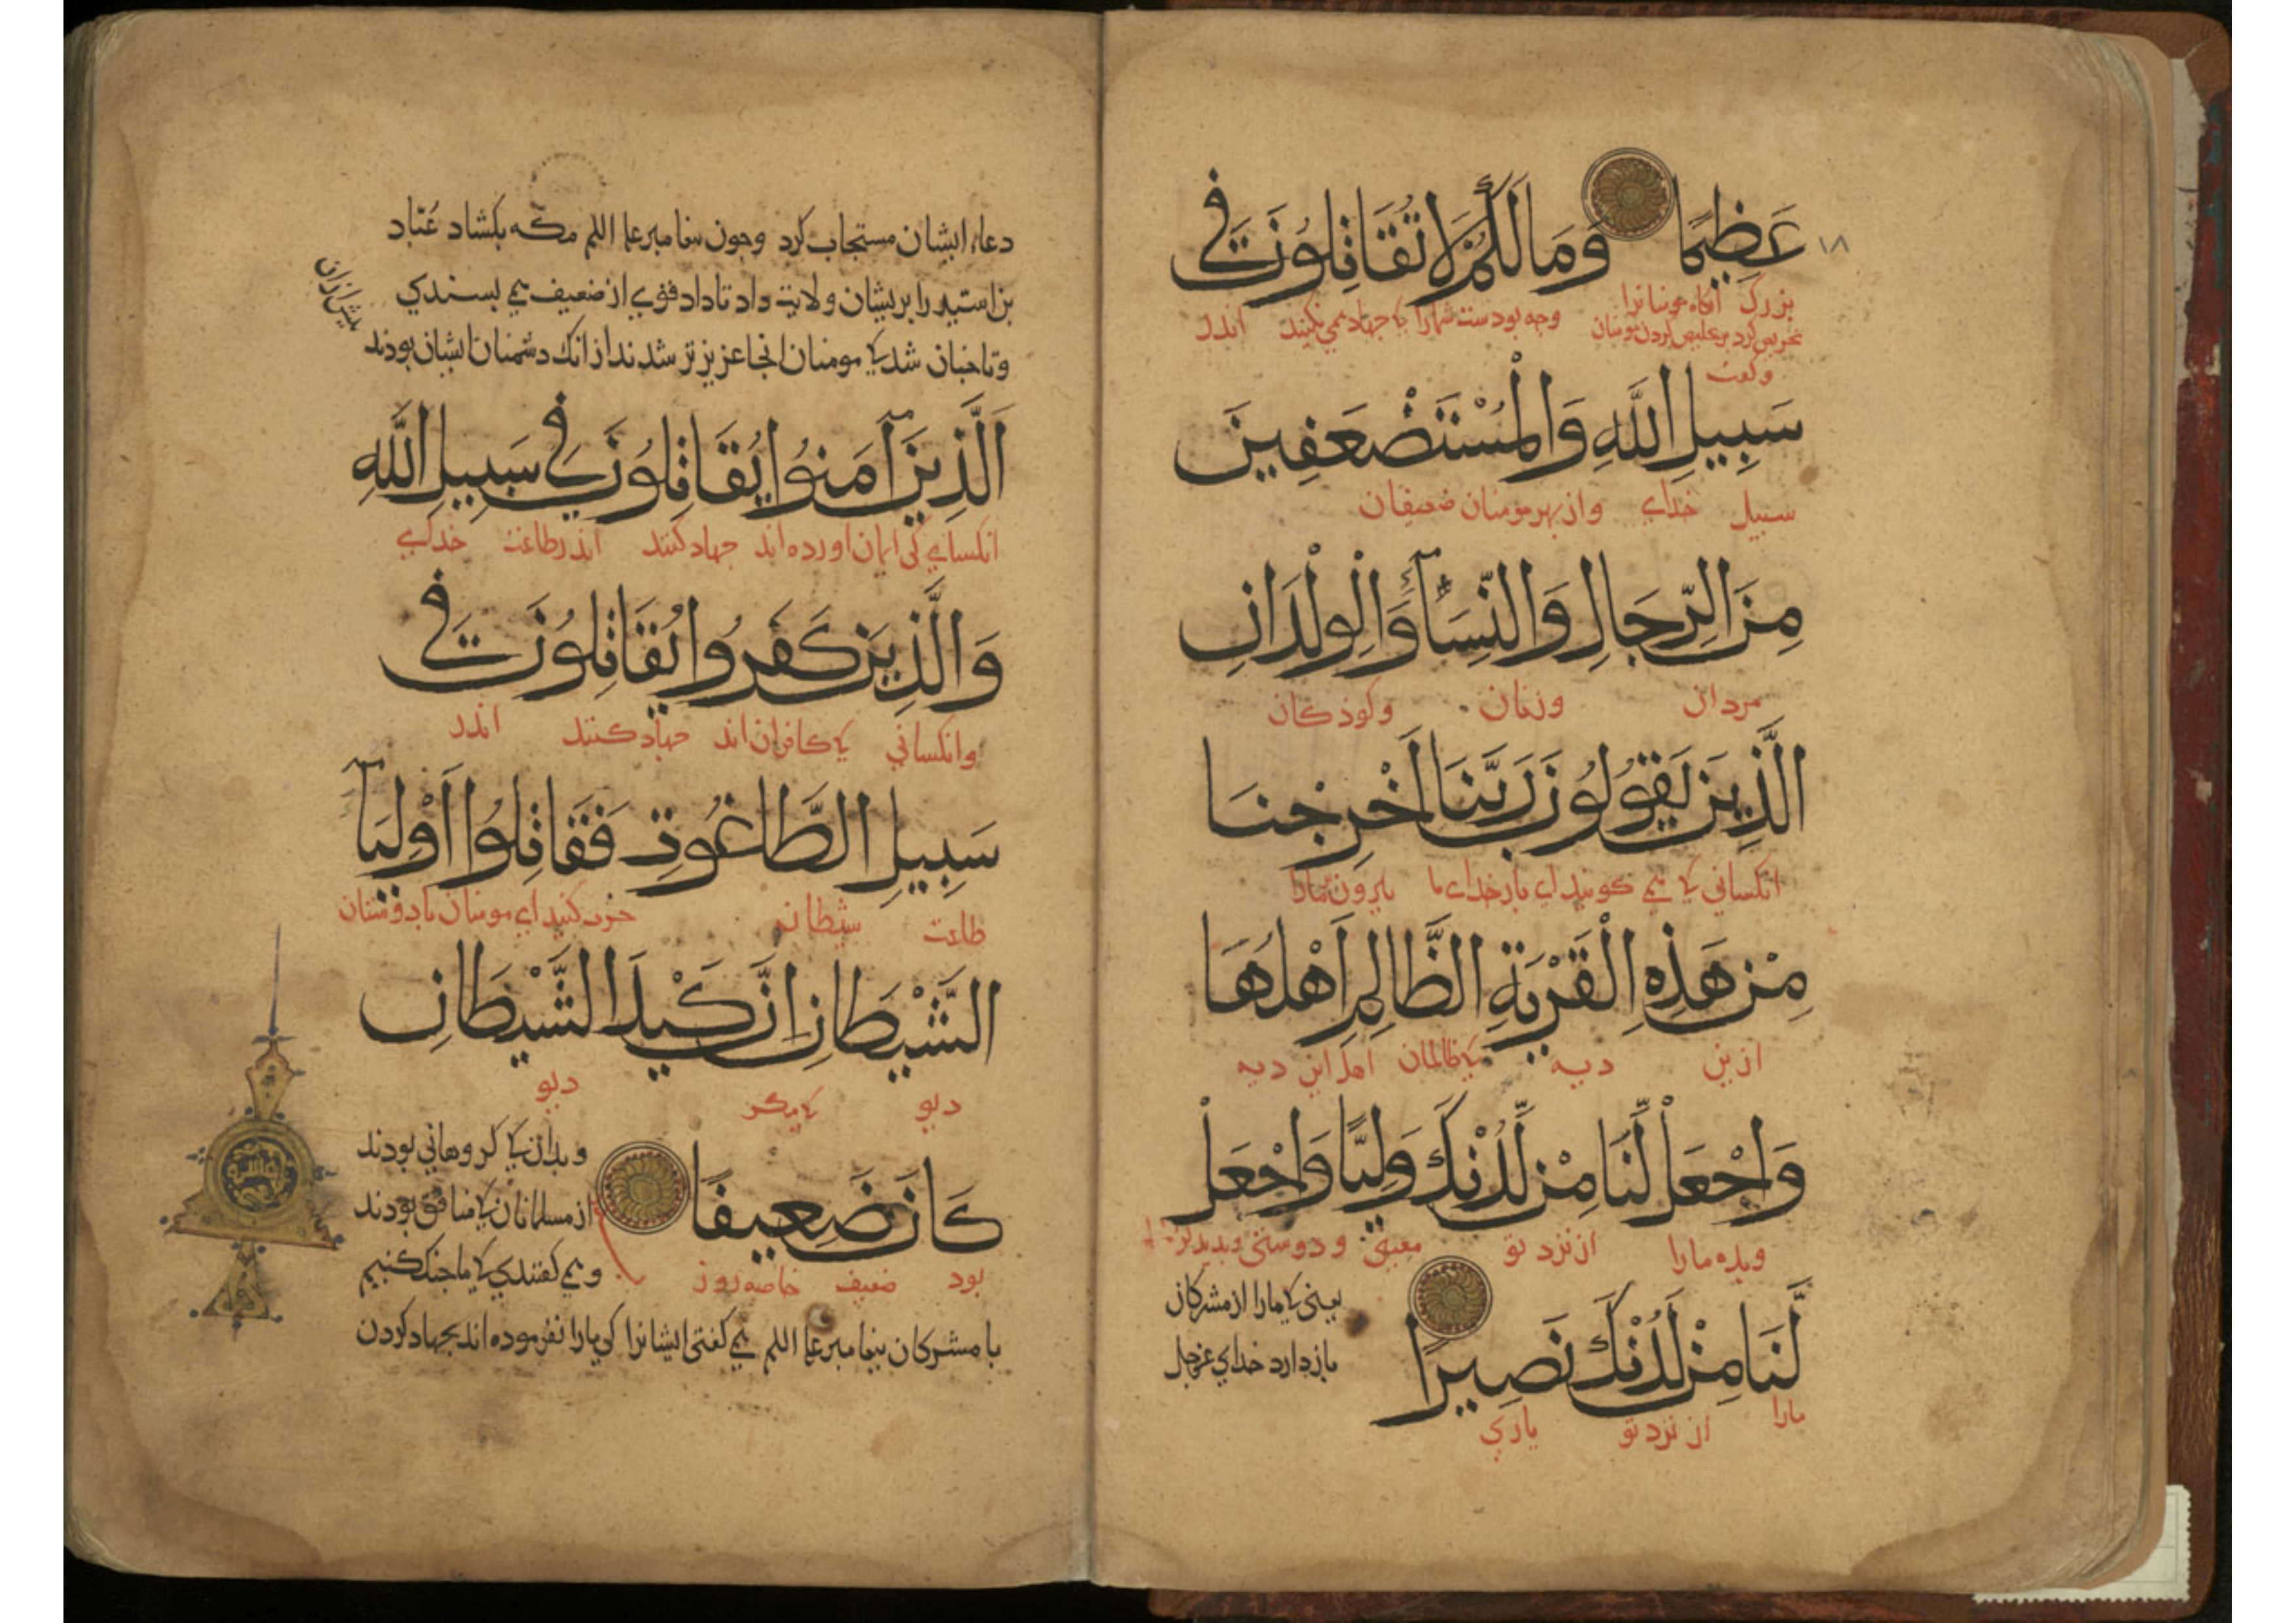 ١٨
عَظِيمًا وَمَا لَكُمْ لَا تُقَاتِلُونَ فِي
بزرگ آنگاه مومنانرا
تحریض کرد بر خلیص کردن مومنان وجه بودست شمارا کی جهاد می نکنید اندر
وگفت
سَبِيلِ اللَّهِ وَالْمُسْتَضْعَفِينَ
سبیل خدای واز بهر مومنان ضعیفان
مِنَ الرِّجَالِ وَالنِّسَاءِ وَالْوِلْدَانِ
مردان وزنان وکوذکان
الَّذِينَ يَقُولُونَ رَبَّنَا أَخْرِجْنَا
انکسانی کی می کویند ای بار خدای ما بیرون مارا
مِنْ هَذِهِ الْقَرْيَةِ الظَّالِمِ أَهْلُهَا
ازین دیه کی ظالمان اهل این دیه
وَاجْعَل لَّنَا مِن لَّدُنْكَ وَلِيًّا وَاجْعَل
وبده مارا از نزد تو معینی ودوستی وبدید
لَّنَا مِن لَّدُنْكَ نَصِيرًا
یعنی کی مارا از مشرکان
باز دارد خدای عزوجل
مارا از نزد تو یاری
دعاء ایشان مستجاب کرد وجون بیغامبر علیه السلم مکه بکشاد عتاب
بن اسید را بریشان ولایت داد تا داد قوی از ضعیف می بستدی
وتا جنان شد کی مومنان انجا عزیزتر شدند از انک دشمنان ایشان بودند
بیش ازان
الَّذِينَ آمَنُوا يُقَاتِلُونَ فِي سَبِيلِ اللَّهِ
انکسانی کی ایمان اورده اند جهاد کنند اندر طاعت خدای
وَالَّذِينَ كَفَرُوا يُقَاتِلُونَ فِي
وانکسانی کی کافران اند جهاد کنند اندر
سَبِيلِ الطَّاغُوتِ فَقَاتِلُوا أَوْلِيَاءَ
طاعت شیطان حرب کنید ای مومنان با دوستان
الشَّيْطَانِ إِنَّ كَيْدَ الشَّيْطَانِ
دیو کی مکر دیو
كَانَ ضَعِيفًا
بود ضعیف خاصه روز
وبدان کی کروهانی بودند
از مسلمانان کی منافق بودند
ومی کفتندی کی ما جنک کنیم
با مشرکان بیغامبر علیه السلم می کفتی ایشانرا کی مارا نفرموده اند بجهاد کردن